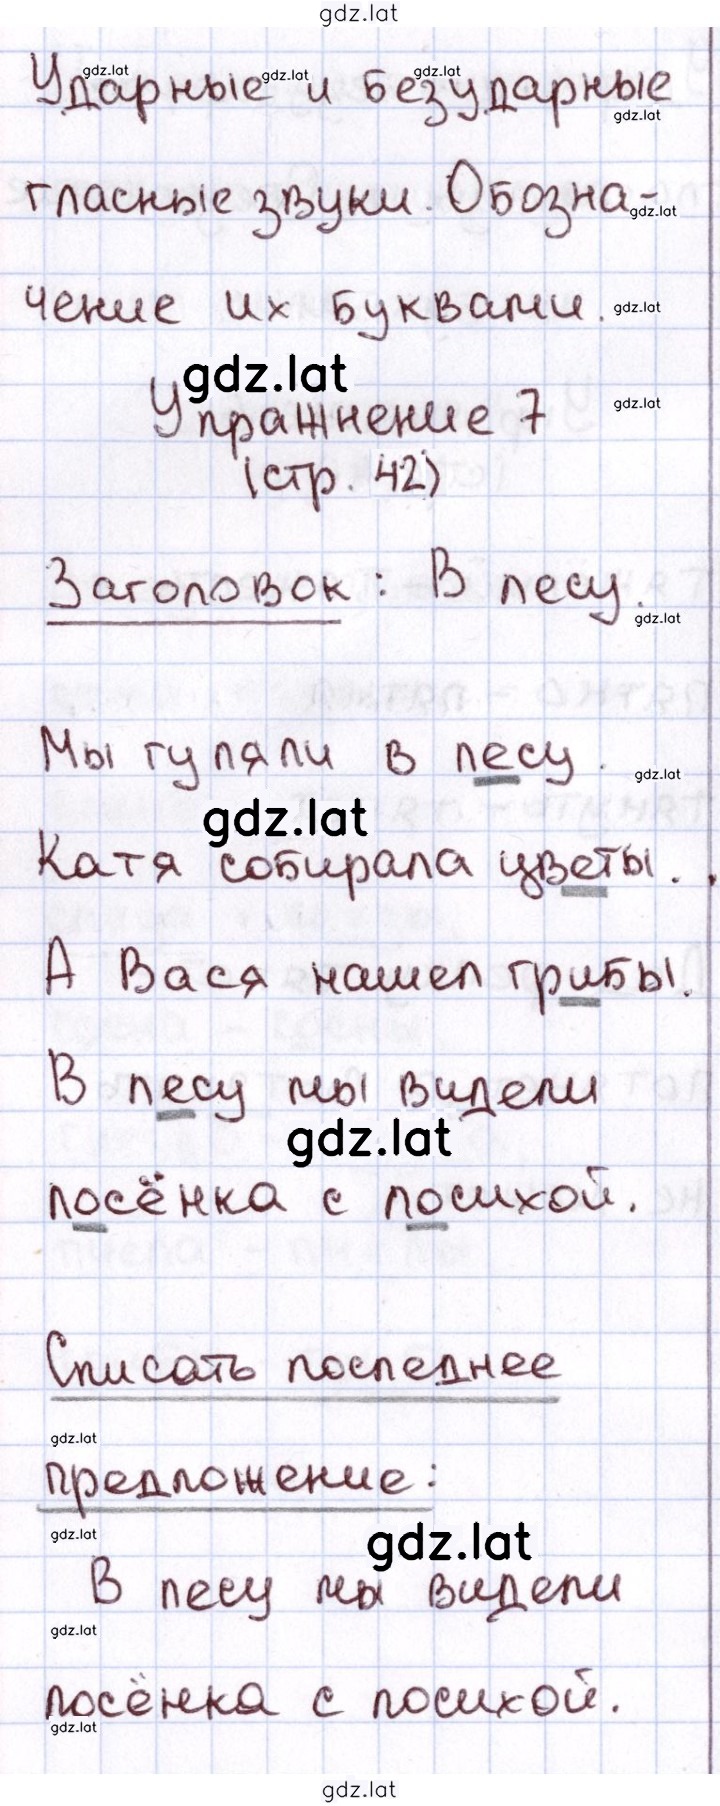 gdz.lat
Ударные и безударные
гласные звуки. Обозна-
чение их буквами.
gdz.lat
Упражнение 7
(стр. 42)
Заголовок: В лесу.
Мы гуляли в лесу.
gdz.lat
Катя собирала цветы.
А Вася нашел грибы.
В лесу мы видели
gdz.lat
лосёнка с лосихой.
Списать последнее
предложение:
gdz.lat
В лесу мы видели
лосёнка с лосихой.
gdz.lat